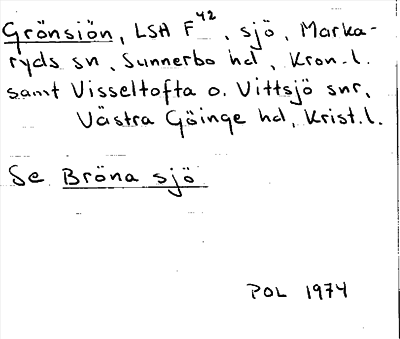 Grönsjön, LSA F⁴², sjö, Marka-
ryds sn, Sunnerbo hd, Kron.l.
samt Visseltofta o. Vittsjö snr,
Västra Göinge hd, Krist.l.
Se Bröna sjö
POL 1974